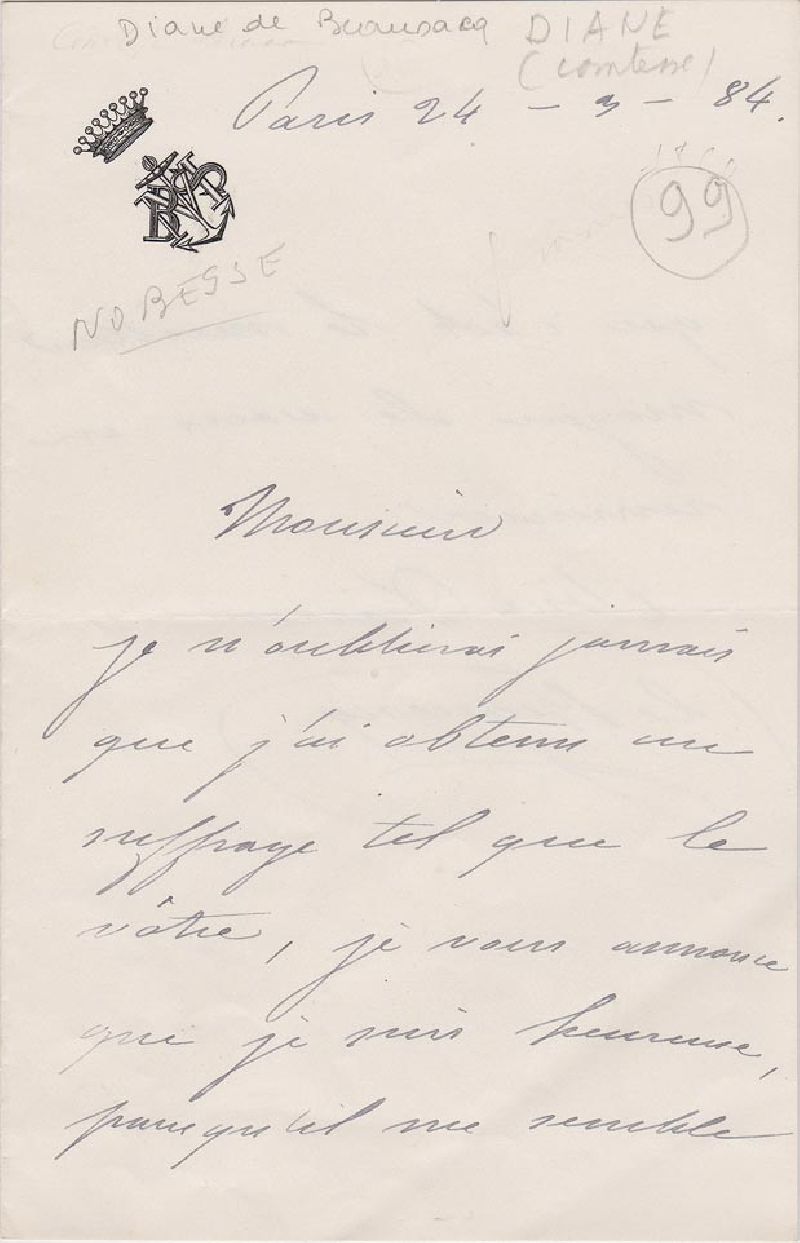 Diane de Beausacq DIANE
(comtesse)
Paris 24 - 3 - 84.
99
NOBESSE
Monsieur
je n'oublierai jamais
que j'ai obtenu un
suffrage tel que le
vôtre, je vous annonce
que je suis heureuse,
parcequ'il me semble